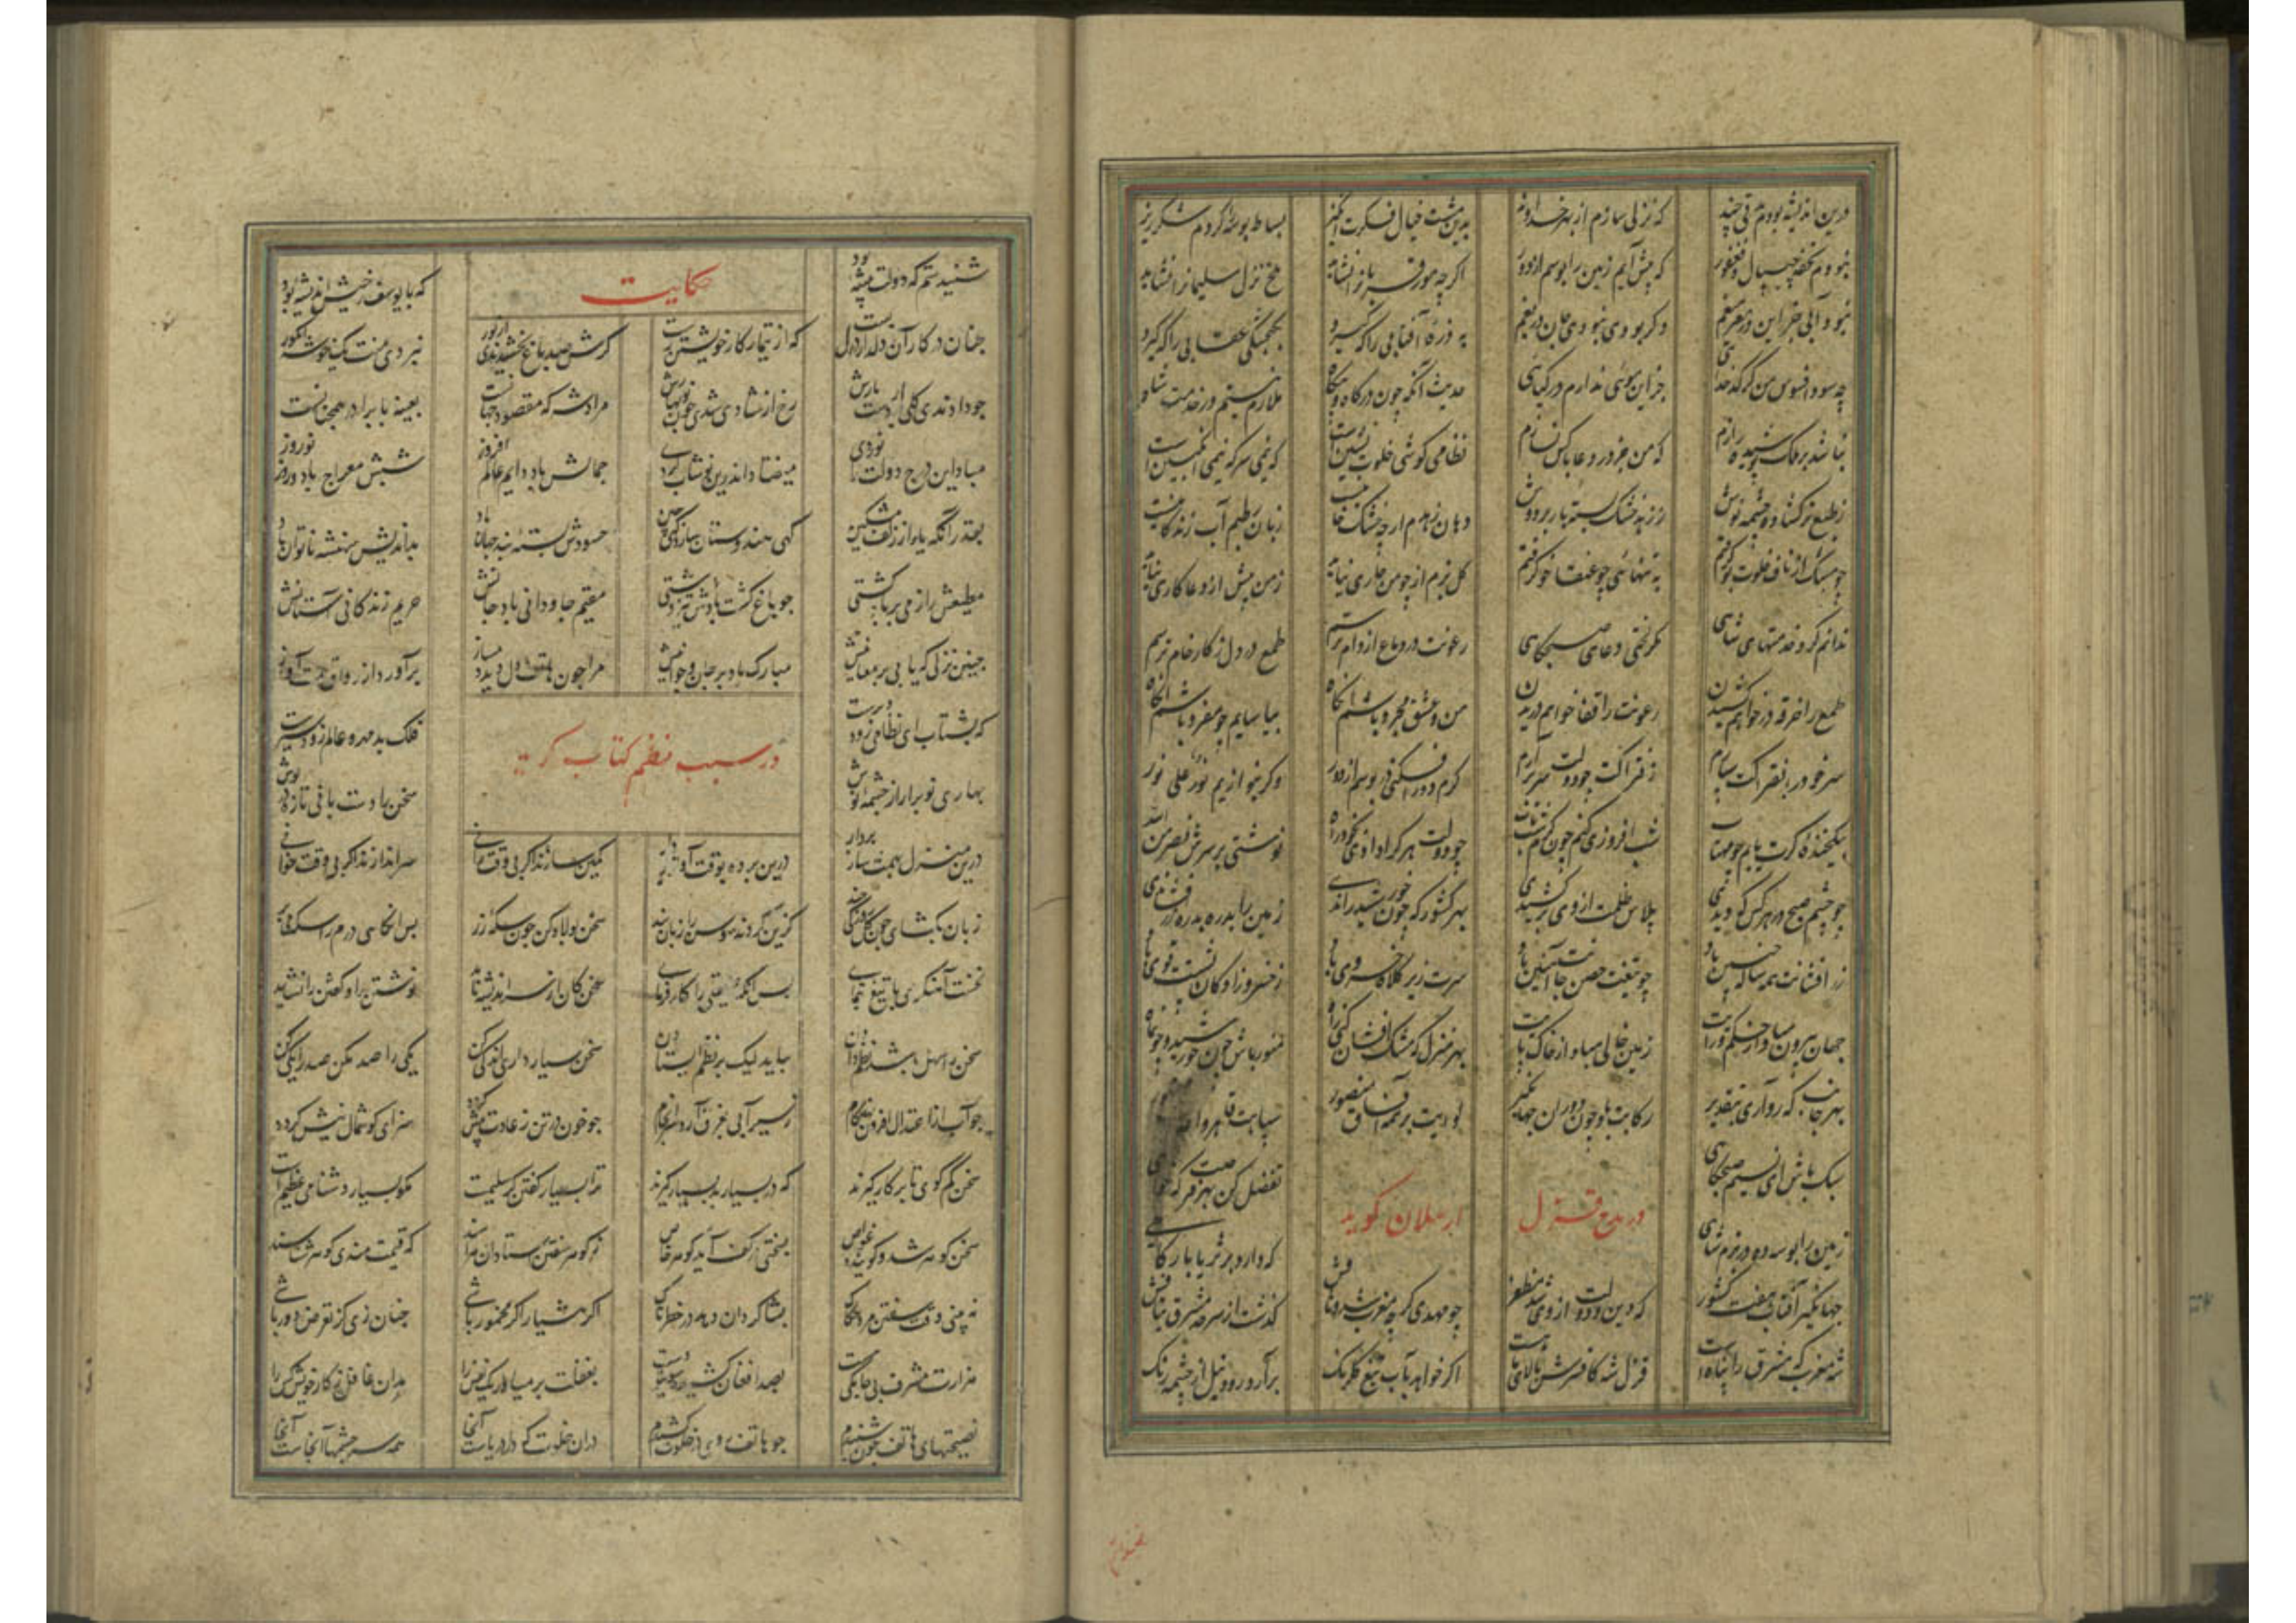 درین اندیشه بودم مدتی چند که نزلی سازم از بهر خداوند بدین مشت خیال فکرت انگیز بساط بوسه کردم شکرریز
نبودم تحفه چیپال و فغفور که پیش آیم زمین را بوسم از دور اگر چه مور قربان را نشاید ملخ نزل سلیمان را نشاید
نبود آبی جز این در مغز میغم وگر بودی نبودی جان دریغم به ذره آفتابی را که گیرد بگنجشکی عقابی را که گیرد
چه سود افسوس من کز کدخدائی جز این موئی ندارم در کیائی حدیث آنکه چون درگاه و بیگاه ملازم نیستم در خدمت شاه
نباشد بر ملک پوشیده رازم که من جز در دعا با کس نسازم نظامی گوشی خلوت نشین است که نیمی سرکه نیمی انگبین است
ز طبع تر گشاده چشمه نوش ز زهد خشک بسته بار بر دوش دهان زهدم ارچه خشک خانیست زبان رطبم آب زندگانیست
چو مشک از ناف خلوت بو گرفتم به تنهائی چو عنقا خو گرفتم گل بزم از چو من خاری نیاید ز من پیش از دعا کاری نیاید
ندانم کرد خدمتهای شاهی مگر لختی دعای صبحگاهی رعونت در دماغ از دام ترسم طمع در دل ز کار خام ترسم
طمع را خرقه در خواهم کشیدن رعونت را قفا خواهم دریدن من و عشق مجرد باشم آنگاه بیاسایم چو مفرد باشم آنگاه
سر خود را بفتراکت سپارم ز فتراکت چو دولت سر برآرم گرم دور افکنی در بوسم از دور وگر بنوازیم نور علی نور
بیکخنده گرت یابم چو مهتاب شب افروزی کنم چون کرم شب تاب چو دولت هر کرا دادی بخود راه نوشتی بر سرش نصر من الله
چو چشم صبح در هر کس که دیدی پلاس ظلمت از وی برکشیدی بهر کشور که چون خورشید راندی زمین را بدره بدره زر فشاندی
زر افشانت همه ساله چنین باد چو تیغت حصن جانت آهنین باد سرت زیر کلاه خسروی باد ز خسرو زادگان پشتت قوی باد
جهان بیرون مباد از حکم و رایت زمین خالی مباد از خاک پایت بهر منزل که مشک افشان کنی راه منور باش چون خورشید و چون ماه
بهر جانب که روآری بتقدیر رکابت باد چون دوران جهانگیر لوایت بر همه آفاق منصور سپاهت قاهر و
سبک باش ای نسیم صبحگاهی تفضل کن بهر که خواهی
در مدح قزل ارسلان گوید
زمین را بوسه ده در بزم شاهی که دارد بر ثریا بارگاهی
جهانگیر آفتاب هفت کشور که دین و دولت از وی شد مظفر چو مهدی گرچه مغرب شد وثاقش گذشت از سرحد مشرق یتاقش
شه مغرب که مشرق را پناهست قزل شه کافسرش بالای ماهست اگر خواهد بآب تیغ گلرنگ برآرد رود نیل از چشمه رنگ
شنیدستم که دولت پیشه بود که با یوسف رخیش اندیشه بود
حکایت
چنان در کار آن دلدار دل بست که از تیمار کار خویشتن رست گرش صد باغ بخشیدندی از نور نبردی منت یک خوشه انگور
چو دادندی گلی بر دست یارش رخ از شادی شدی چون نوبهارش مرادش که مقصود جهانست بعینه با برادر همچنانست
مبادا این درج دولت را نوردی میفتاد اندرین نوشاب گردی جمالش باد دایم عالم افروز شبش معراج باد و روز نوروز
بقدر آنکه باد از زلف مشکین گهی هندوستان سازد گهی چین حسودش بسته بند جهان باد بداندیش همیشه ناتوان باد
مطیعش را ز می پر باد کشتی چو باغ گشت بادش تیز دشتی مقیم جاودانی باد جانش حریم زندگانی آستانش
چنین نزلی که یابی پر معانیش مبارک باد بر جان و جوانیش مرا چون هاتف دل دید دمساز برآورد از رواق همت آواز
که بشتاب ای نظامی زود دیرست فلک بدمهر و عالم زود سیرست
در سبب نظم کتاب گوید
بهاری نو برآر از چشمه نوش سخن را دست بافی تازه درپوش
درین منزل بهمت ساز بردار درین پرده بوقت آواز بردار کمین سازند اگر بی وقت رانی سراندازند اگر بی وقت خوانی
زبان بگشای چون گل روزکی چند کزین کردند سوسن را زبان بند سخن پولاد کن چون سکه زر بدین سکه درم را سکه می‌بر
نخست آهنگری با تیغ بنمای پس آنگه صیقلی را کار فرمای سخن کان از سر اندیشه ناید نوشتن را و گفتن را نشاید
سخن را سهل باشد نظم دادن بباید لیک بر نظم ایستادن سخن بسیار داری اندکی کن یکی را صد مکن صد را یکی کن
چو آب از اعتدال افزون نهد گام ز سیرابی بغرق آرد سرانجام چو خون در تن ز عادت بیش گردد سزای گوشمال نیش گردد
سخن کم گوی تا بر کار گیرند که در بسیار بد بسیار گیرند ترا بسیار گفتن گر سلیمست مگو بسیار دشنامی عظیمست
سخن گوهر شد و گوینده غواص بسختی در کف آید گوهر خاص ز گوهر سفتن استادان هراسند که قیمت مندی گوهر شناسند
نه بینی وقت سفتن مرد حکاک بشاگردان دهد در خطرناک اگر هشیار اگر مخمور باشی چنان زی کز تعرض دور باشی
هزارت مشرف بی جامگی هست بصد افغان کشیده سوی تو دست بغفلت بر میاور یک نفس را مدان غافل ز کار خویش کس را
نصیحتهای هاتف چون شنیدم چو هاتف روی در خلوت کشیدم در آن خلوت که دل دریاست آنجا همه سرچشمها آنجاست آنجا